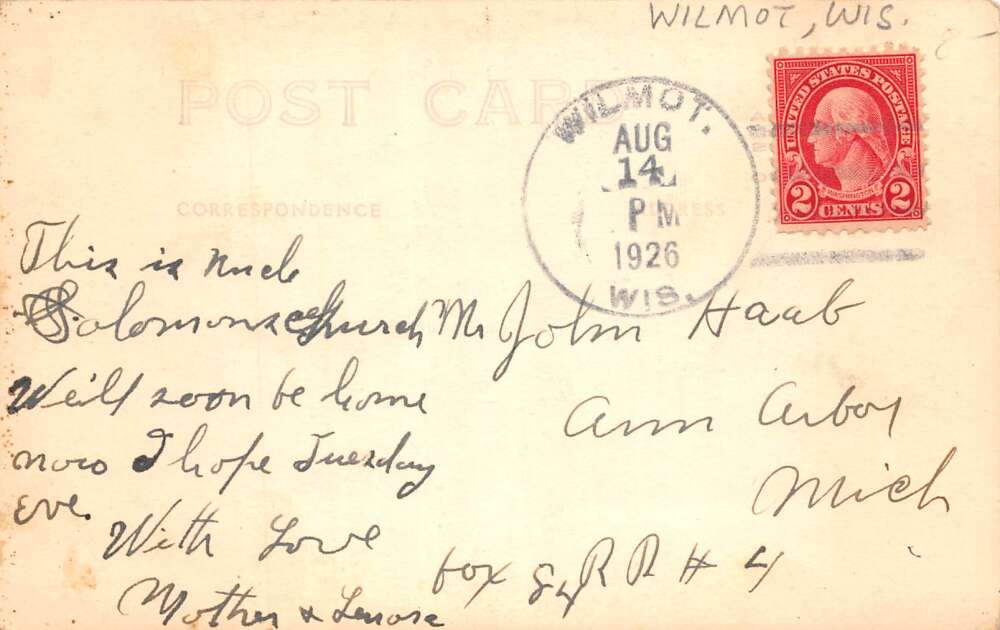 WILMOT, WIS.
POST CARD
CORRESPONDENCE
ADDRESS
WILMOT.
AUG
14
PM
1926
WIS.
UNITED STATES POSTAGE
WASHINGTON
2 CENTS 2
This is
Solomons Church
We'll soon be home
now I hope Tuesday
eve.
With Love
Mother & Lenora
Mr John Haab
Ann Arbor
Mich
box RR # 4